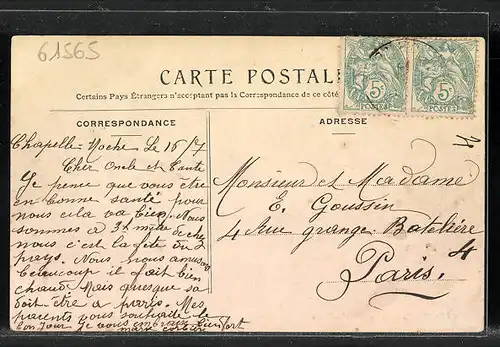 61565
CARTE POSTALE
Certains Pays Étrangers n'acceptant pas la Correspondance de ce côté
CORRESPONDANCE
ADRESSE
5c
POSTES
5c
POSTES
Chapelle Le 16/7
Cher Oncle et Tante
Je pense que vous etre
en bonne santé pour
nous cela va bien. Nous
sommes a 3
nous c'est la fete du
pays. Nous nous amuson
beaucoup il fait bien
chaud. Mais quesque sa
doit etre a paris. Mes
parents vous souhaite le
bonjour Je vous embrasse bien fort
Monsieur et Madame
E. Goussin
4 Rue grange Batelière
4
Paris.